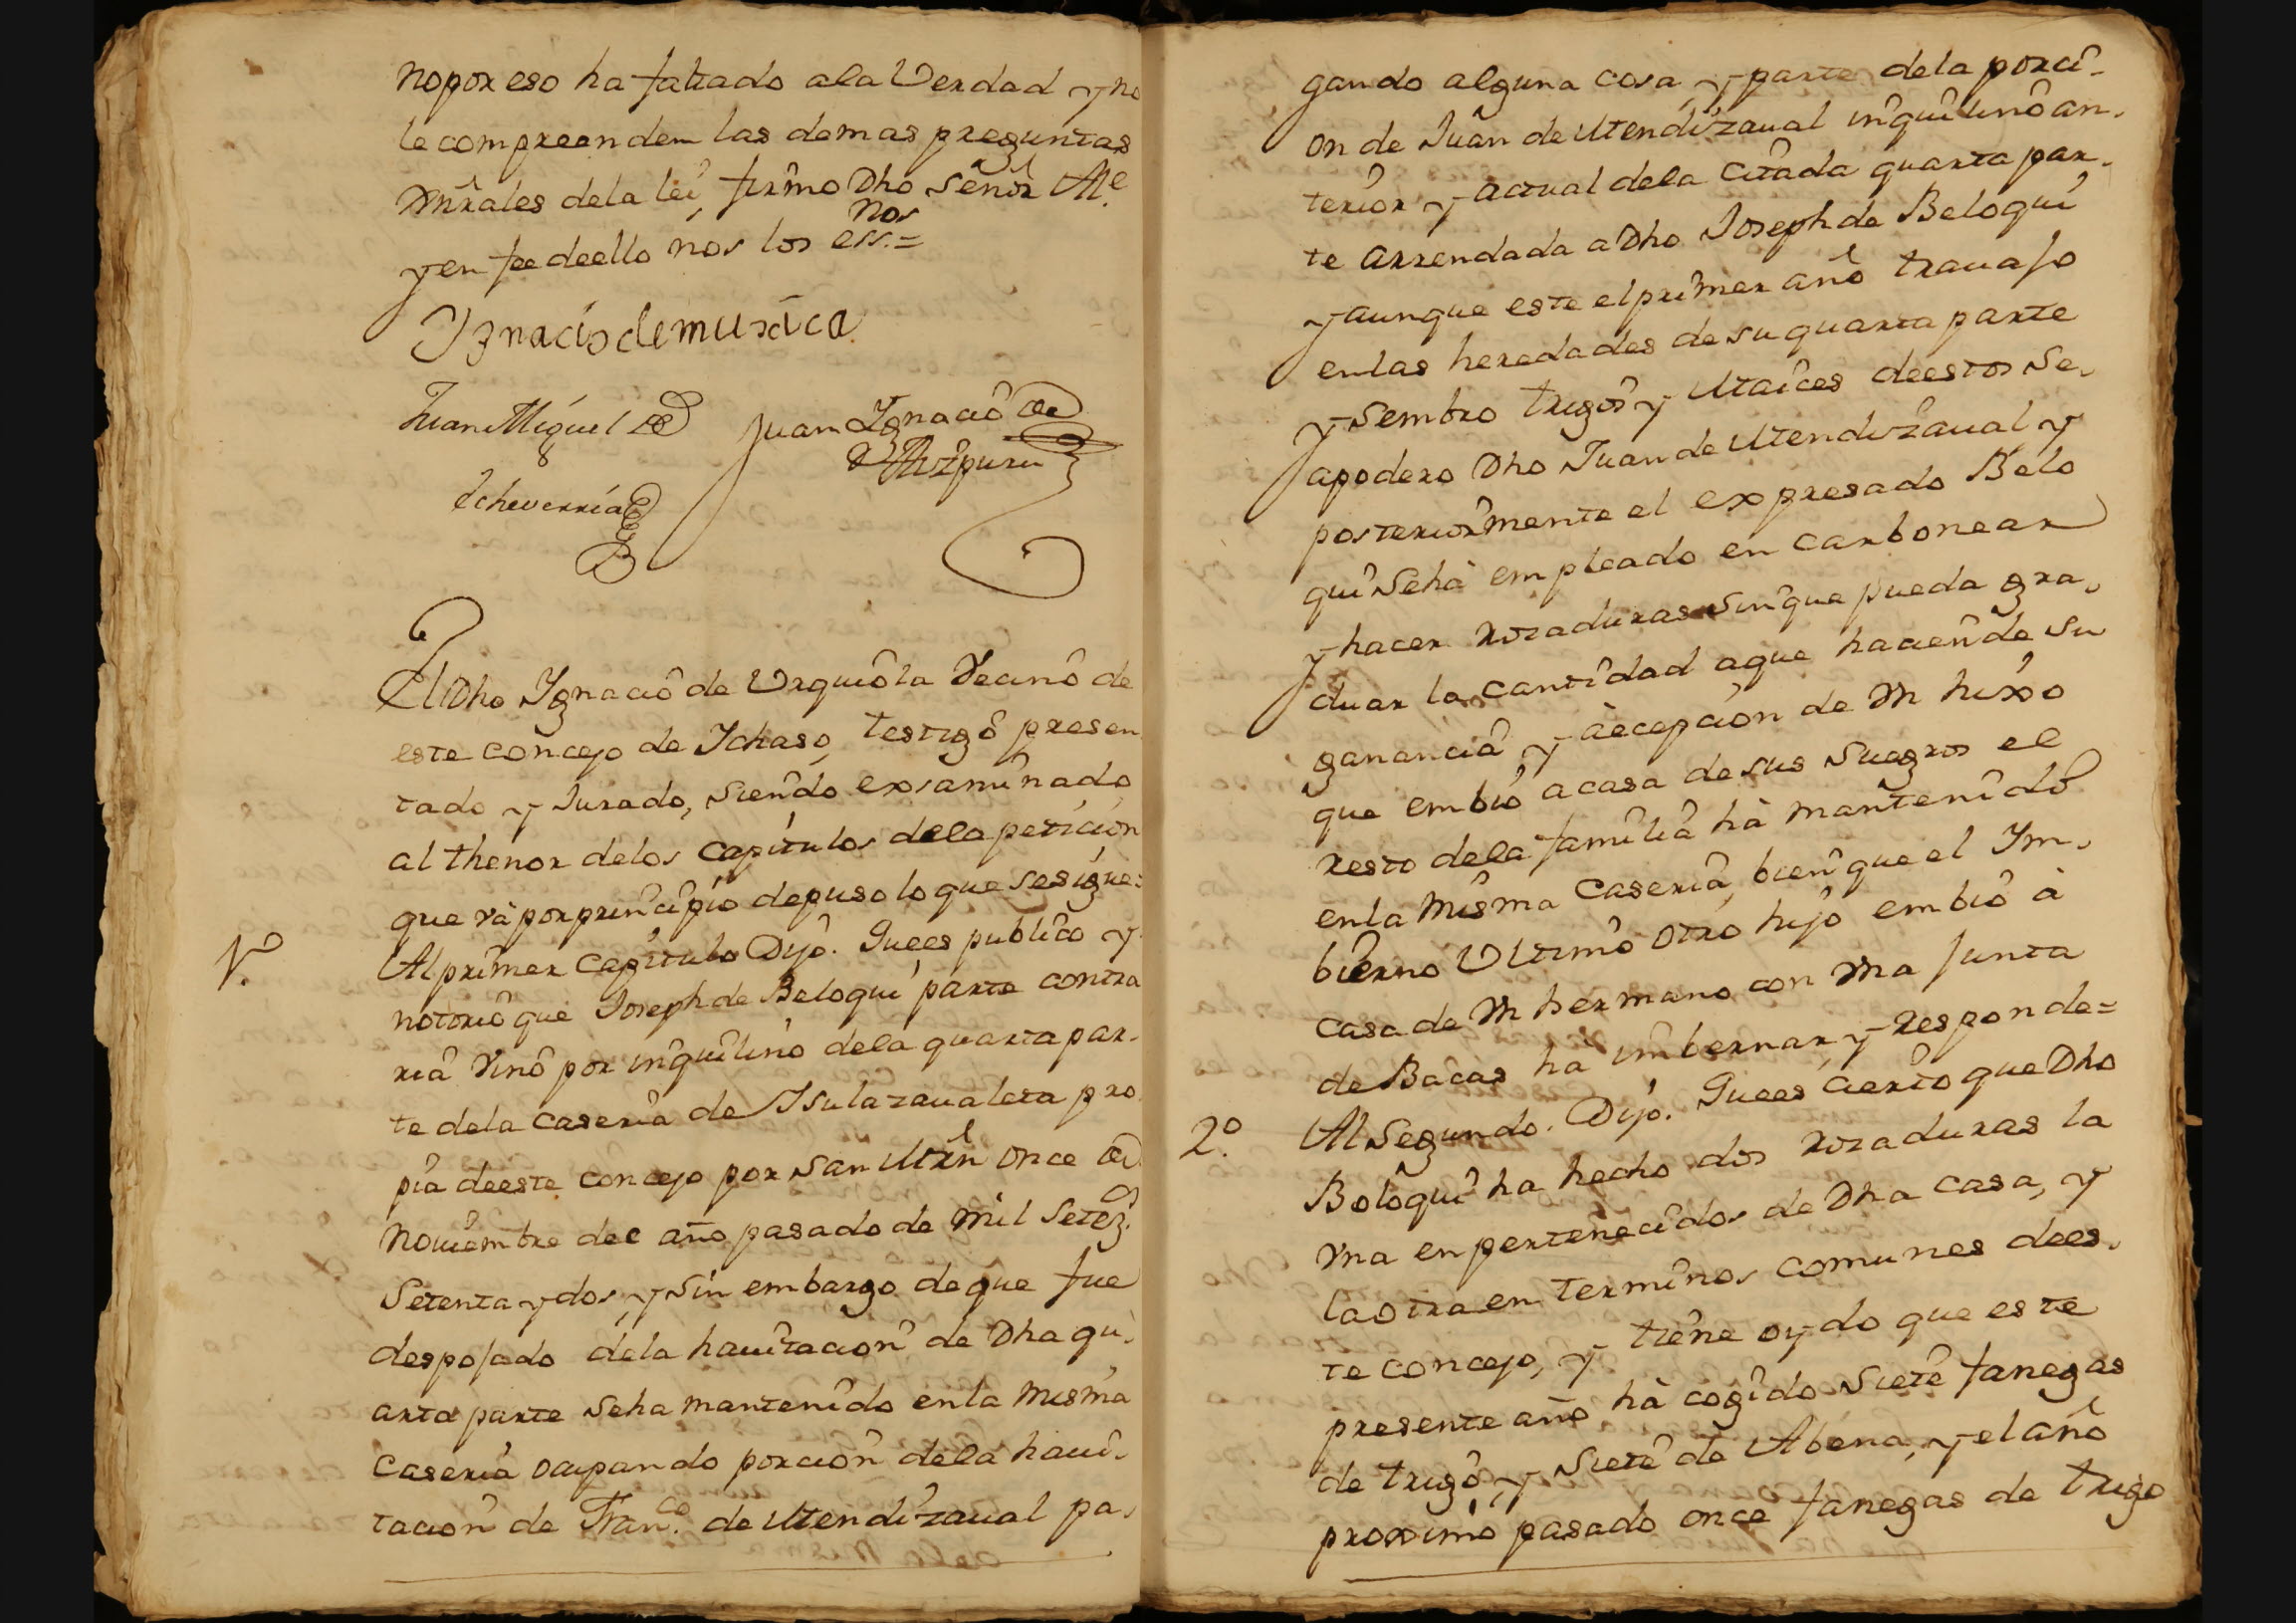 no por eso ha faltado ala Verdad y no
le compreenden las demas preguntas
Grãles dela lei, firmo Dho señor Al.e
y en fee deello nos los ess.nos =
Ignacio de muxica
Juan Miguel de
Echeverria
Juan Ignacio de
Aizpuru
El Dho Ignacio de Urquiola Vecino de
este concejo de Ichaso, testigo presen
tado y Jurado, siendo exsaminado
al thenor delos Capitulos dela peticion
que và por principio depuso lo que sesigue:
1.º
Al primer Capitulo Dijo. Quees publico y
notorio que Joseph de Beloqui parte contra
ria Vino por inquilino dela quarta par-
te dela Caseria de Isulazaualeta pro
pia deeste concejo por San Mrñ once de
Nouiembre del año pasado de mil Setez.s
Setenta y dos, y sin embargo deque fue
despojado dela hauitacion de Dha qu-
arta parte seha mantenido enla misma
Caseria ocupando porcion dela haui-
tacion de Fran.co de Mendizaual pa-
gando alguna cosa, y parte dela porci-
on de Juan de Mendizaual inquilino an-
terior y actual dela Citada quarta par-
te arrendada a Dho Joseph de Beloqui
y aunque este el primer año trauajo
enlas heredades de su quarta parte
y sembro trigos y Maices deestos se-
apodero Dho Juan de Mendizaual y
posteriormente el expresado Belo
qui sehà empleado en carbonear
y hacer rozaduras sinque pueda gra-
duar la cantidad aque haciende su
ganancia y àecepcion de Vn hixo
que embio acasa de sus suegros el
resto dela familia hà mantenido
enla misma Caseria, bienque el Im-
bierno Vltimo otro hijo embio à
casa de Vn hermano con Vna Junta
de Bacas hà imbernar y responde=
2.º
Al Segundo. Dijo. Quees cierto que Dho
Boloqui ha hecho dos rozaduras la
Vna en pertenecidos de Dha casa, y
la otra en terminos comunes dees-
te concejo, y tiene oydo que este
presente año hà cogido siete fanegas
de trigo, y siete de Abena, y el año
proximo pasado once fanegas de trigo